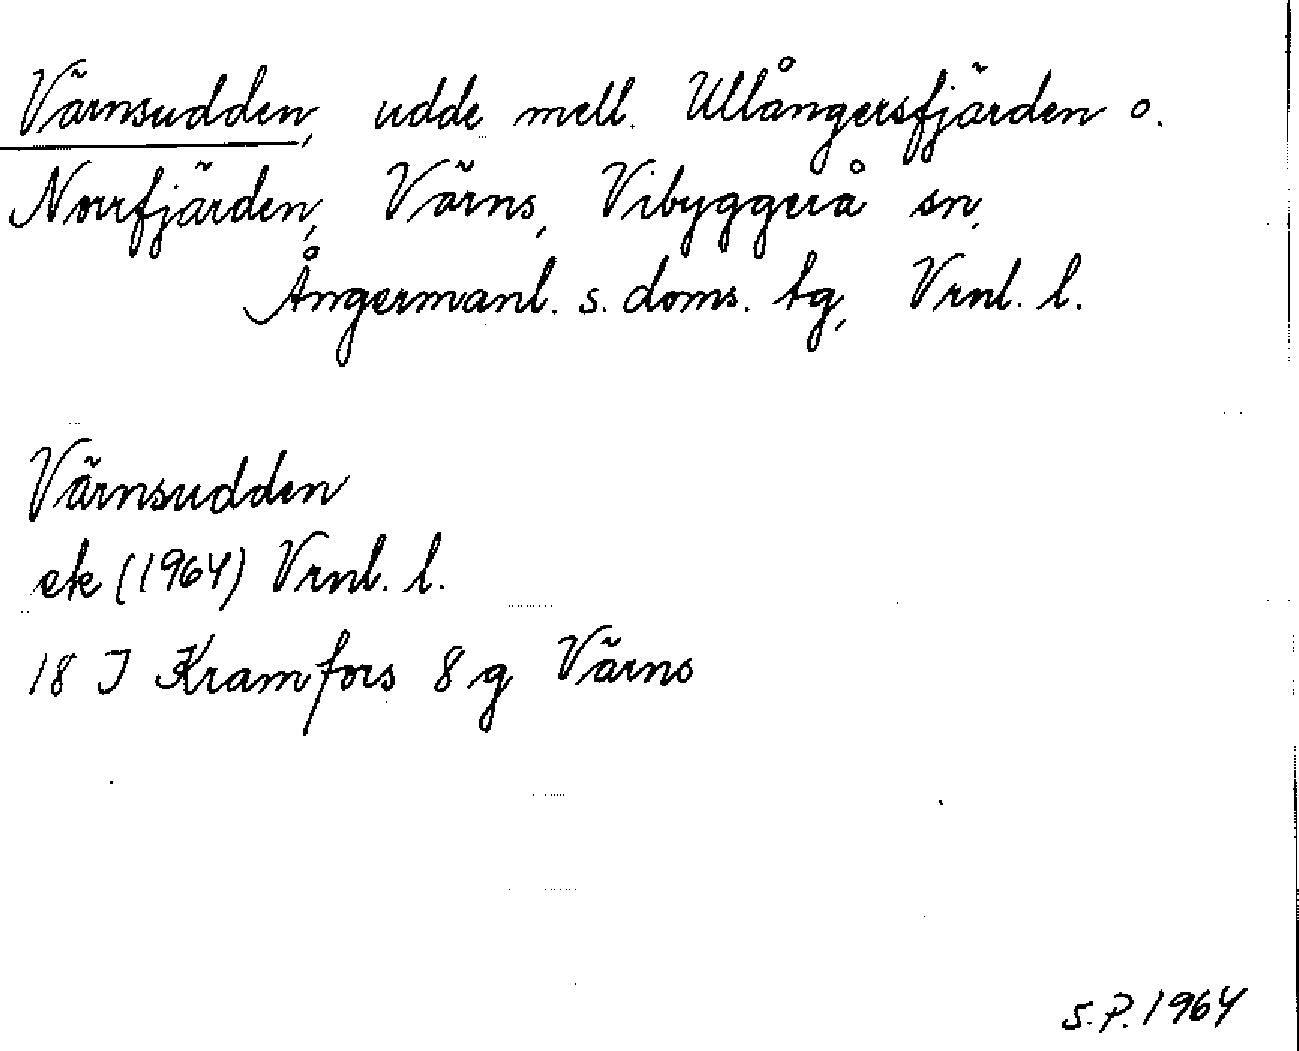 Värnsudden, udde mell. Ullångersfjärden o.
Norrfjärden, Värns, Vibyggerå sn,
Ångermanl. s. doms. tg, Vrnl. l.
Värnsudden
ek (1964) Vrnl. l.
18 J Kramfors 8 g Värns
S.P. 1964